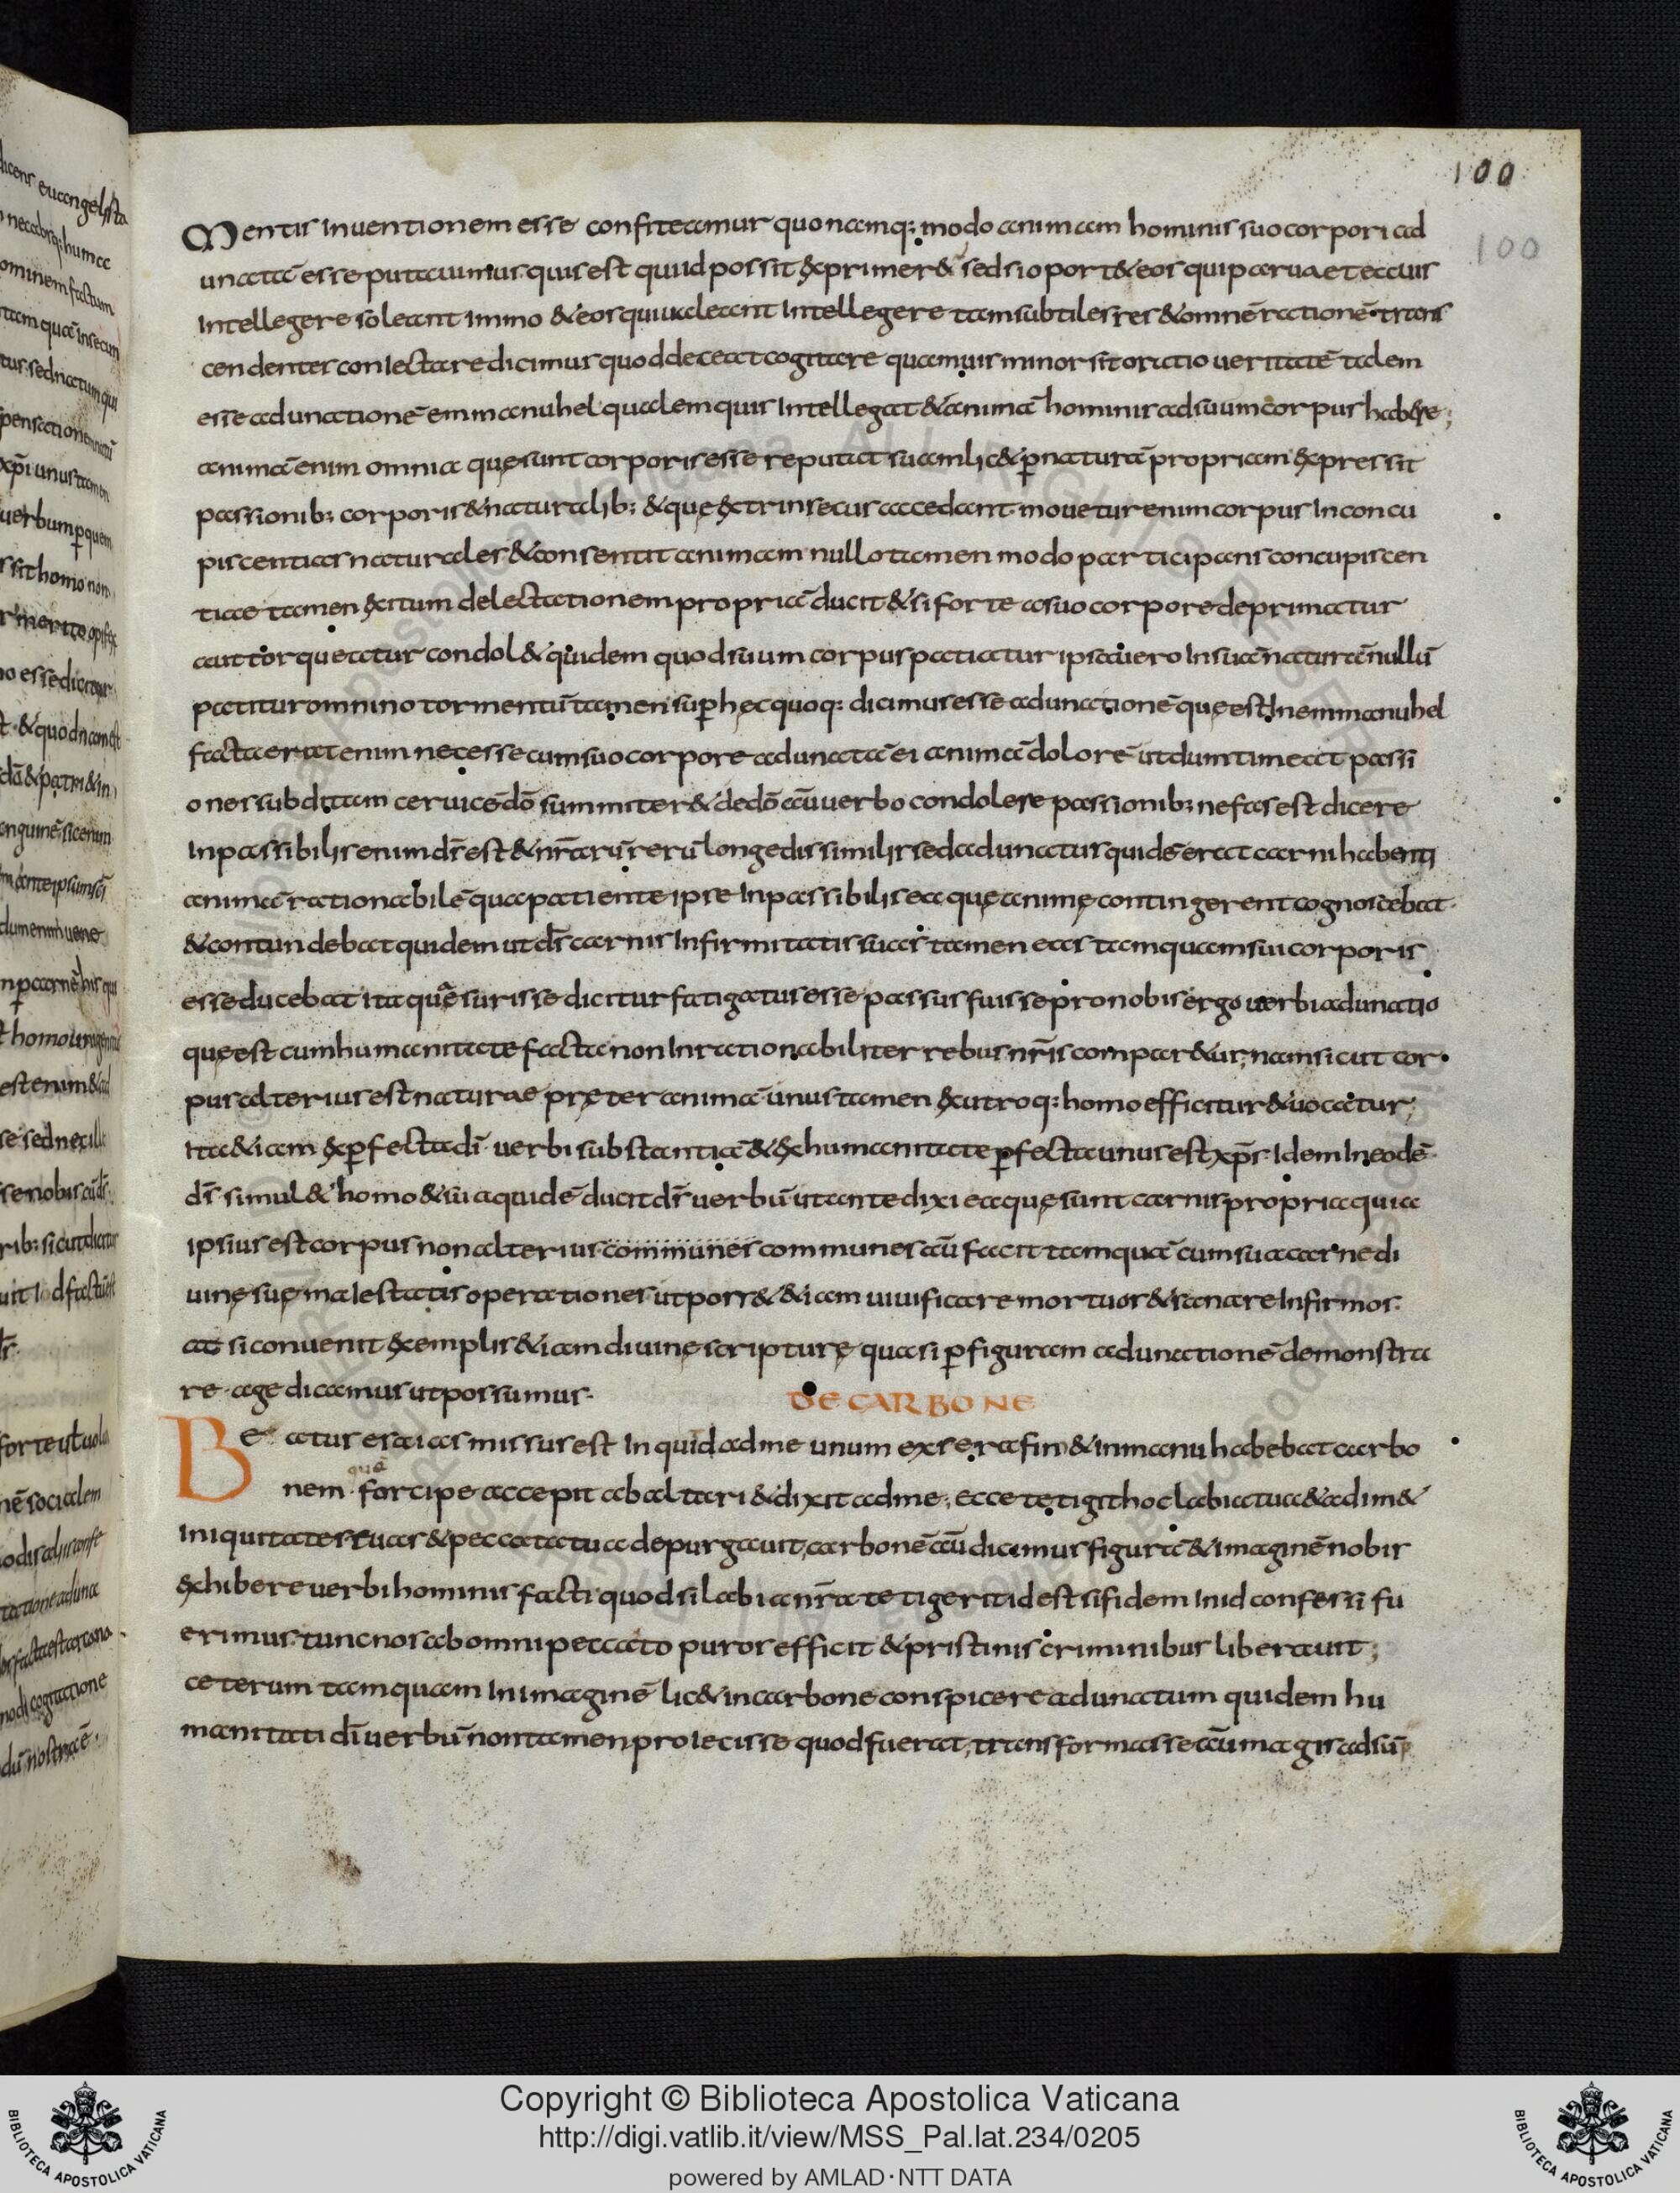 100
100
Mentis inuentionem esse confiteamur quo namq; modo animam hominis suo corpori ad
unatā esse putauimus. quis est quid possit exprimer& sed si oport& eos qui parua et eauis
Intellegere soleant immo & eos qui ualeant Intellegere tam subtiles res & omnē rationē trans
cendentes coniectare dicimus quod deceat cogitare quamuis minor sit oratio ueritatē talem
esse adunationē emmanuhel qualem quis Intellegat & animā hominis ad suum corpus habere;
animā enim omnia quę sunt corporis esse reputat sua mlic& p̄ naturā propriam expressit
passionib; corporis & naturalib; & quę extrinsecus accedant mouetur enim corpus In concu
piscentias naturales & consentit animam nullo tamen modo participans concupiscen
tiae tamen exitum delectationem propriā ducit & si forte a suo corpore deprimatur
aut torqueatur condol& quidem quod suum corpus patiatur ipsa uero In suā naturā nullū
patitur omnino tormentū tamen sup̄ hęc quoq; dicimus esse adunationē quę est In emmanuhel
facta erat enim necesse cum suo corpore adunatā ei animā dolorē ut dum timeat passi
ones subditam ceruicē dō summiter& de dō aū uerbo condolere passionib; nefas est dicere
Inpassibilis enim dr̄ est & nr̄arū rerū longe dissimilis sed adunatus quidē erat carni habenti
animā rationabilē qua patiente ipse Inpassibilis ea quę animę contingerent cognoscebat.
& contundebat quidem ut dr̄ carnis Infirmitatis suas tamen eas tamquam sui corporis
esse ducebat ita quę̄ suris se dicitur fatigatus esse passus fuisse pro nobis ergo uerbi adunatio
quę est cum humanitate facta non Inrationabiliter rebus nr̄is compar&ur; nam sicut cor
pus alterius est naturae pręter animā unus tamen ex utroq; homo efficitur & uocatur;
Ita & iam ex p̄fecta dī uerbi substantiā & ex humanitate p̄fecta unus est xp̄s Idem In eodē
dr̄ simul & homo & sua quidē ducit dr̄ uerbū ut ante dixi ea quę sunt carnis propria quia
ipsius est corpus non alterius communes communes aū facit tamquā cum sua carne di
uinę suę maiestatis operationes ut porr& & iam uiuificare mortuos & sanare Infirmos.
at si conuenit exemplis & iam diuinę scripturę quasi p̄ figuram adunationē demonstra
re age dicamus ut possumus.
DE CARBONE
Beatus esaias missus est In quid ad me unum ex serafin & in manu habebat carbo
quā
nem forcipe accepit ab altari & dixit ad me; ecce tetigit hoc labia tua & adim&
Iniquitates tuas & peccata tua depurgauit, carbonē aū dicimus figurā & imaginē nobis
exhibere uerbi hominis facti quod si labia nr̄a tetigerit id est si fidem In id confessi fu
erimus tunc nos ab omni peccato puros efficit & pristinis criminibus liberauit;
ceterum tamquam In imaginē lic& in carbone conspicere adunatum quidem hu
manitati dī uerbū non tamen proiecisse quod fuerat, transformasse aū magis adsū
Copyright © Biblioteca Apostolica Vaticana
http://digi.vatlib.it/view/MSS_Pal.lat.234/0205
powered by AMLAD·NTT DATA
BIBLIOTECA APOSTOLICA VATICANA
BIBLIOTECA APOSTOLICA VATICANA